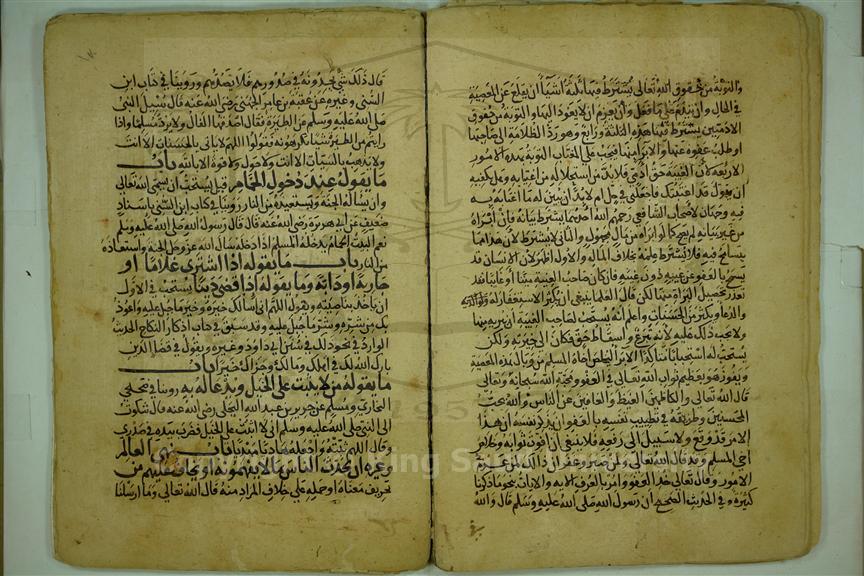 والتوبة من حقوق الله تعالى يشترط فيها ثلاثة أشياء أن يقلع عن المعصية
في الحال وان يندم على ما فعل وأن يعزم ان لا يعود اليها والتوبة من حقوق
الادميين يشترط فيها هذه الثلثة ورابع وهو رد الظلامة الى صاحبها
او طلب عفوه عنها والابراء منها فيجب على المغتاب التوبة بهذه الأمور
الاربعة لأن الغيبة حق ادمي فلابد من استحلاله من اغتابه وهل يكفيه
ان يقول قد اغتبتك فاجعلني في حل ام لابد ان يبين له ما اغتابه به
فيه وجهان لاصحاب الشافعي رحمهم الله احدهما يشترط بيانه فإن أبرأه
من غير بيانه لم يصح كما لو ابراه من مال مجهول والثاني لا يشترط لأن هذا مما
يتسامح فيه فلا يشترط علمه بخلاف المال والاول اظهر لأن الانسان قد
يسمح بالعفو عن غيبة دون غيبة فان كان صاحب الغيبة ميتا أو غائبا فقد
تعذر تحصيل البراة منها لكن قال العلما ينبغي ان يكثر الاستغفار له
والدعا ويكثر من الحسنات واعلم انه يستحب لصاحب الغيبة أن يبريه منها
ولا يجب ذلك عليه لأنه تبرع وإسقاط حق فكان الى خيرته ولكن
يستحب له استحبابا متأكدا الابرا ليخلص اخاه المسلم من وبال هذه المعصية
ويفوز هو بعظيم ثواب الله تعالى في العفو ومحبة الله سبحانه وتعالى
قال الله تعالى والكاظمين الغيظ والعافين عن الناس والله يحب
المحسنين وطريقه في تطييب نفسه بالعفو ان يذكر نفسه ان هذا
الامر قد وقع ولا سبيل الى رفعه فلا ينبغي ان افوت ثوابه وخلاص
اخي المسلم وقد قال الله تعالى ولمن صبر وغفر ان ذلك لمن عزم
الأمور وقال تعالى خذ العفو وامر بالعرف الاية والايات بنحو ما ذكرنا
كثيرة وفي الحديث الصحيح أن رسول الله صلى الله عليه وسلم قال والله
قال ذلك شي يجدونه في صدورهم فلا يصدنهم وروينا في كتاب ابن
السني وغيره عن عقبة بن عامر الجهني رضي الله عنه قال سئل النبي
صلى الله عليه وسلم عن الطيرة فقال اصدقها الفال ولا يرد مسلما واذا
رايتم من الطيرة شيا تكرهونه فقولوا اللهم لا ياتي بالحسنات الا انت
ولا يذهب بالسيآت الا انت ولا حول ولا قوة الا بالله باب
ما يقوله عند دخول الحمام قيل يستحب ان يسمي الله تعالى
وان يساله الجنة ويستعيذه من النار روينا في كتاب ابن السني باسناد
ضعيف عن ابي هريرة رضي الله عنه قال قال رسول الله صلى الله عليه وسلم
نعم البيت الحمام يدخله المسلم اذا دخله سال الله عز وجل الجنة واستعاذه
من النار باب ما يقوله اذا اشترى غلاما او
جارية او دابة وما يقوله إذا قضى دينا يستحب في الاول
ان ياخذ بناصيته ويقول اللهم اني اسالك خيره وخير ما جبل عليه واعوذ
بك من شره وشر ما جبل عليه وقد سبق في كتاب اذكار النكاح الحديث
الوارد في نحو ذلك في سنن ابي داود وغيره ويقول في قضا الدين
بارك الله لك في اهلك ومالك وجزاك خيرا باب
ما يقوله من لا يثبت على الخيل ويدعا له به روينا في صحيحي
البخاري ومسلم عن جرير بن عبد الله البجلي رضي الله عنه قال شكوت
الى النبي صلى الله عليه وسلم اني لا اثبت على الخيل فضرب بيده في صدري
وقال اللهم ثبته واجعله هاديا مهديا باب نهي العالم
وغيره ان يحدث الناس بما لا يفهمونه او يخاف عليهم من
تحريف معناه او حمله على خلاف المراد منه قال الله تعالى وما ارسلنا